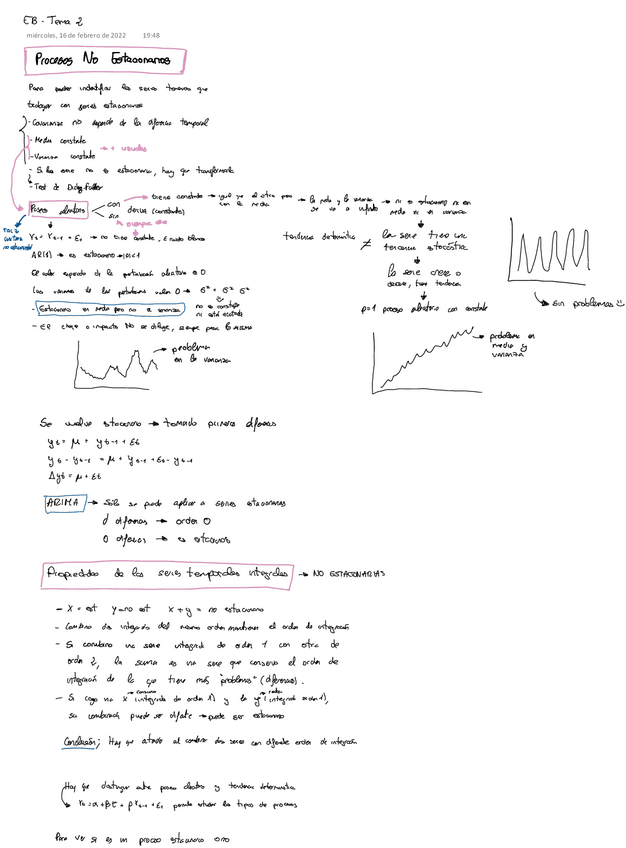 EB - Tema 2
miércoles, 16 de febrero de 2022 19:48
Procesos No Estacionarios
Para poder indentificar las series tenemos que
trabajar con series estacionarias
- Covarianza no depende de la diferencia temporal
- Media constante
- Varianza constante → + usuales
- Si la serie no es estacionaria, hay que transformarla
- Test de Dickey-Fuller
Paseo aleatorio
con
sin
deriva (constante)
tiene constante → igual que el otro pero con la media → la media y la varianza se va a infinito → no es estacionaria ni en media ni en varianza
Yt = Yt-1 + Et → no tiene constante, E ruido blanco
AR(1) → es estacionario →
El valor esperado de la perturbación aleatoria es 0
Las varianzas de las perturbaciones valen
Estacionario en media pero no en varianza
no es constante
- El choque o impacto No se diluye, siempre
problema
en la varianza
tendencia determinística ≠ la serie tiene una
tendencia estocástica
↓
la serie crece o
decrece, tiene tendencia
↓
ρ=1 proceso aleatorio con constante
problema en
media y
varianza
sin problemas
Se vuelve estacionario → tomando primeras diferencias
yt = μ + yt-1 + Et
yt - yt-1 = μ + yt-1 + Et - yt-1
Δyt = μ + Et
ARIMA → Sólo se puede aplicar a series estacionarias
d diferencias → orden 0
0 diferencias → es estacionario
Propiedades de las series temporales integrales → NO ESTACIONARIAS
- X = est y=no est x+y = no estacionario
- Combino dos integradas del mismo orden mantienen el orden de integración
- Si combino una serie integral de orden 1 con otra de
orden 2, la suma es una serie que conserva el orden de
integración de la que tiene más "problemas" (diferencias).
- Si cojo una x (integrada de orden 1) y la y (integral orden 1),
su combinación puede ser → puede ser estacionario
consumo
renta
Conclusión; Hay que atender al combinar dos series con diferente orden de integración
Hay que distinguir entre proceso aleatorio y tendencia determinística
Yt = α + βt + ρYt-1 + Et permite los tipos de procesos
Para ver si es un proceso estacionario o no